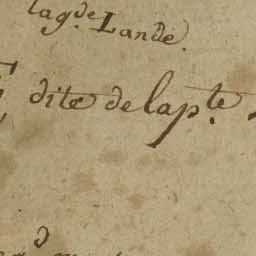 lag.de Lande.
dite de lap.te